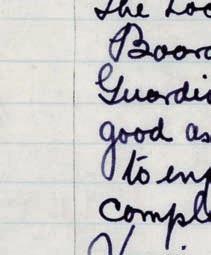 the Loc
Board
Guardi
good as
to eng
comple